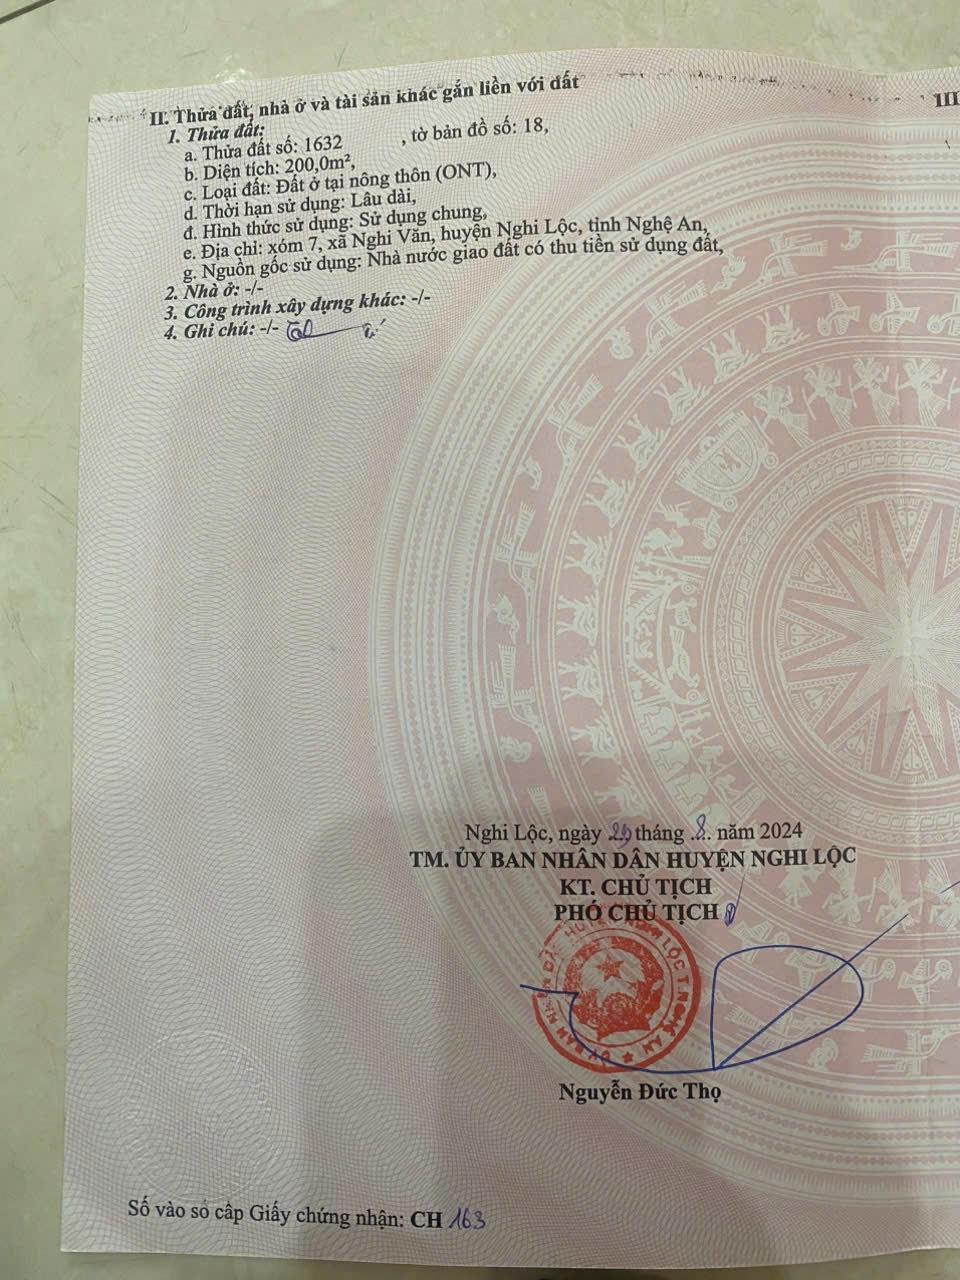 II. Thửa đất, nhà ở và tài sản khác gắn liền với đất
III
1. Thửa đất:
a. Thửa đất số: 1632 , tờ bản đồ số: 18,
b. Diện tích: 200,0m²,
c. Loại đất: Đất ở tại nông thôn (ONT),
d. Thời hạn sử dụng: Lâu dài,
đ. Hình thức sử dụng: Sử dụng chung,
e. Địa chỉ: xóm 7, xã Nghi Văn, huyện Nghi Lộc, tỉnh Nghệ An,
g. Nguồn gốc sử dụng: Nhà nước giao đất có thu tiền sử dụng đất,
2. Nhà ở: -/-
3. Công trình xây dựng khác: -/-
4. Ghi chú: -/-
Nghi Lộc, ngày 29 tháng .8. năm 2024
TM. ỦY BAN NHÂN DÂN HUYỆN NGHI LỘC
KT. CHỦ TỊCH
PHÓ CHỦ TỊCH
ỦY BAN NHÂN DÂN HUYỆN NGHI LỘC T.NGHỆ AN
Nguyễn Đức Thọ
Số vào sổ cấp Giấy chứng nhận: CH 163